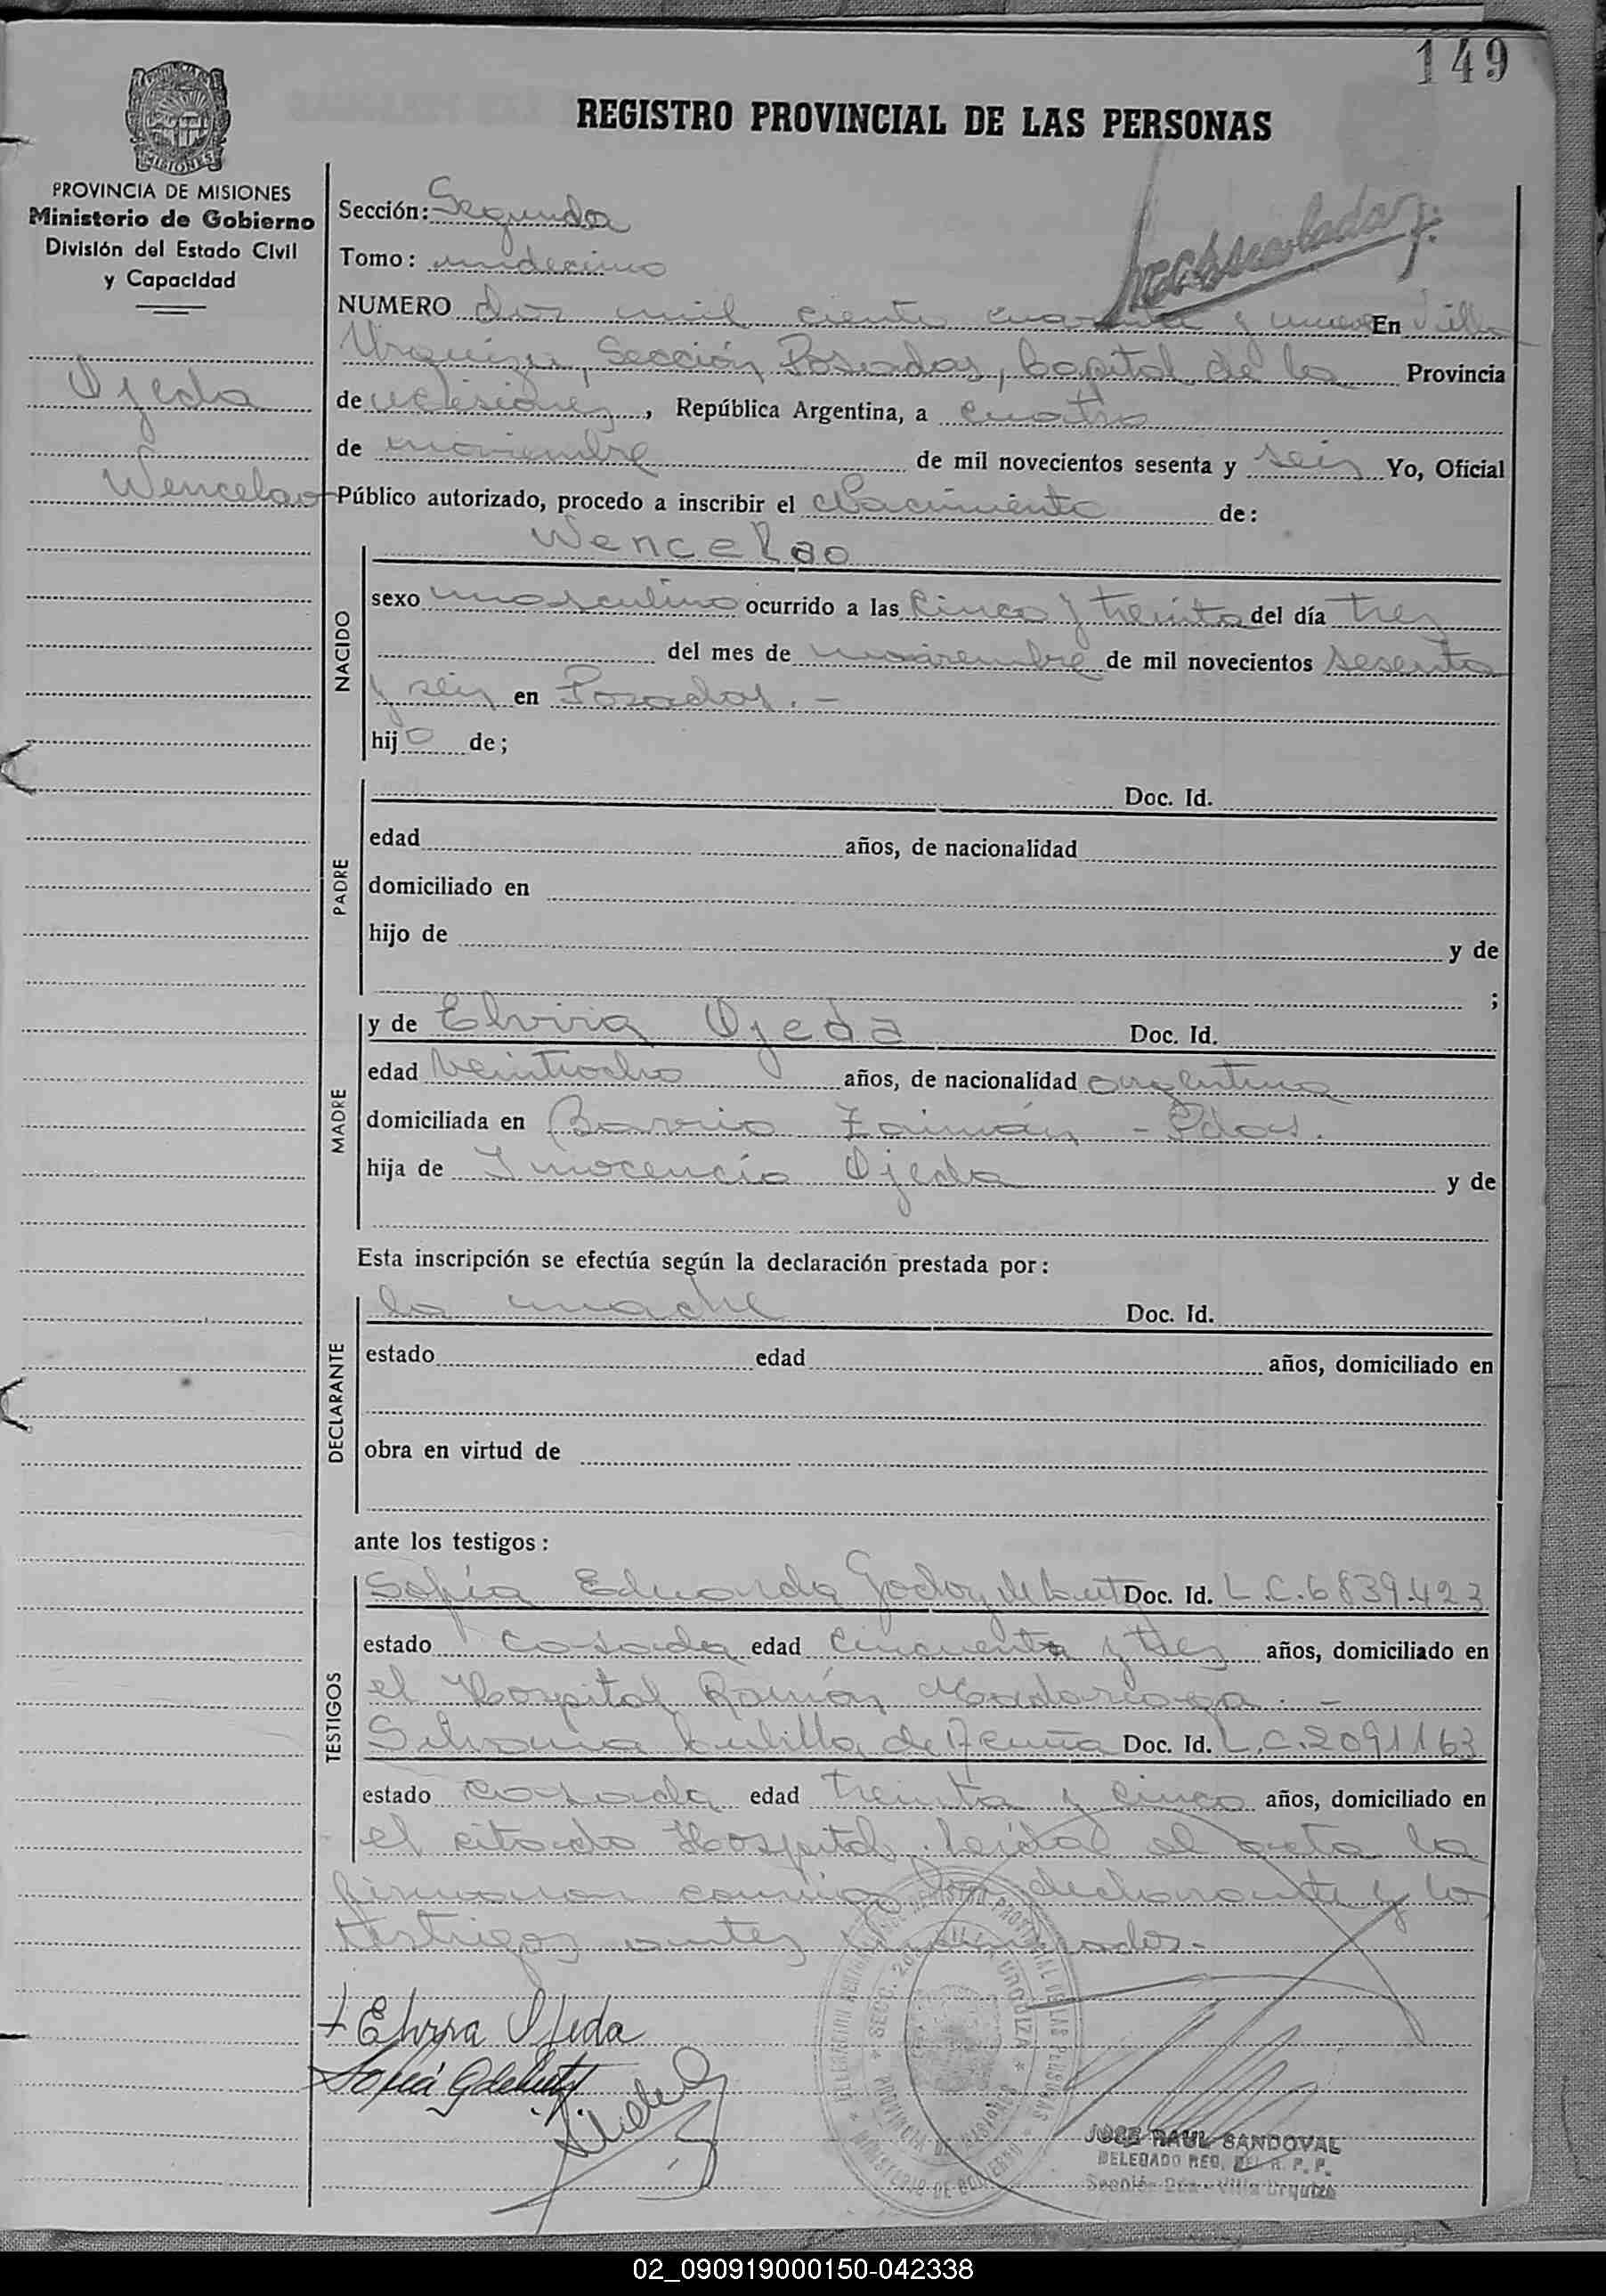 149
REGISTRO PROVINCIAL DE LAS PERSONAS
MISIONES
PROVINCIA DE MISIONES
Ministerio de Gobierno
División del Estado Civil
y Capacidad
Ojeda
Wencelao
Sección: Segunda
Tomo: undecimo
NUMERO dos mil ciento cuarenta y nueve En Villa
Urquiza, Sección Posadas, Capital de la Provincia
de Misiones, República Argentina, a cuatro
de noviembre de mil novecientos sesenta y seis Yo, Oficial
Público autorizado, procedo a inscribir el Nacimiento de:
Wencelao
NACIDO
sexo masculino ocurrido a las cinco y treinta del día tres
del mes de noviembre de mil novecientos sesenta
y seis en Posadas.-
hijo de;
PADRE
Doc. Id.
edad años, de nacionalidad
domiciliado en
hijo de y de
;
MADRE
y de Elvira Ojeda Doc. Id.
edad veintiocho años, de nacionalidad argentina
domiciliada en Barrio Zaimán - Pdas.
hija de Inocencia Ojeda y de
Esta inscripción se efectúa según la declaración prestada por:
DECLARANTE
la madre Doc. Id.
estado edad años, domiciliado en
obra en virtud de
ante los testigos:
TESTIGOS
Sofía Eduarda Godoy de Doc. Id. L.C.6839.423
estado casada edad cincuenta y tres años, domiciliado en
el Hospital Ramón Madariaga.-
de Acuña Doc. Id. L.C.2091163
estado casada edad treinta y cinco años, domiciliado en
el citado Hospital. Leída el acta la
firmaron conmigo la declarante y los
testigos antes
Elvira Ojeda
Sofía G de
JOSE RAUL SANDOVAL
DELEGADO REG. DEL R. P. P.
Sección 2da - Villa Urquiza
02_090919000150-042338